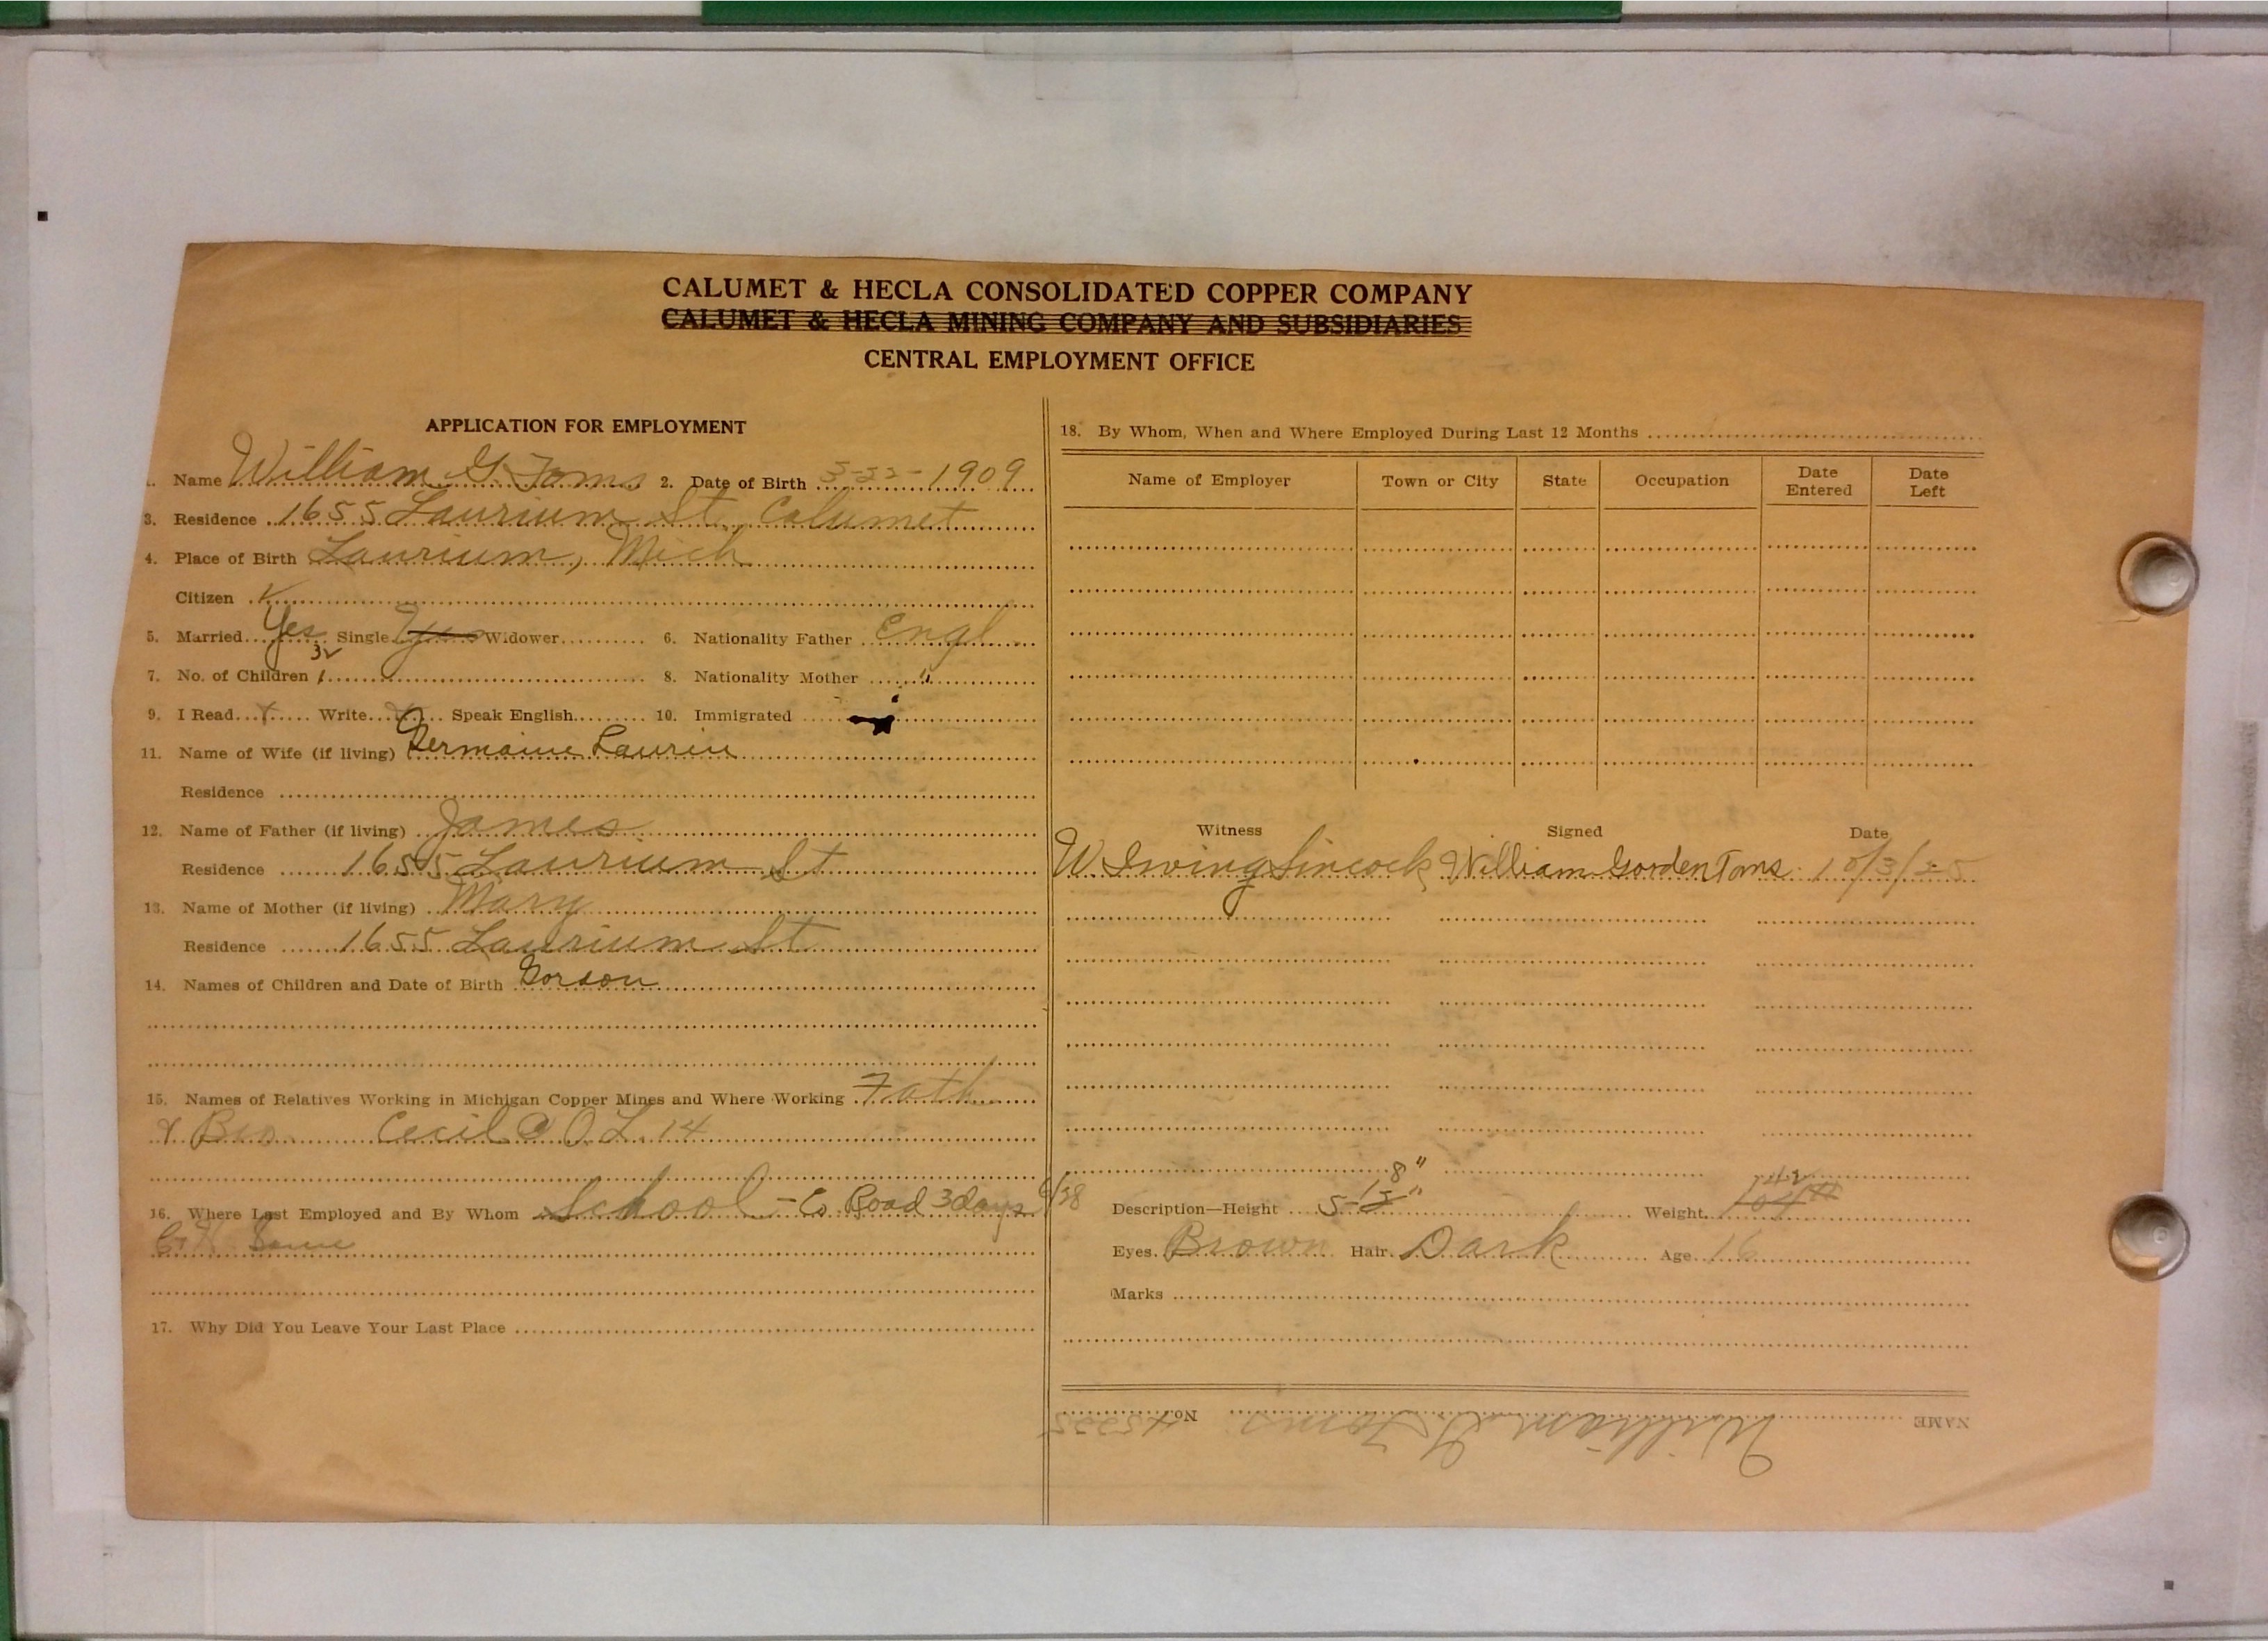 CALUMET & HECLA CONSOLIDATED COPPER COMPANY
CALUMET & HECLA MINING COMPANY AND SUBSIDIARIES
CENTRAL EMPLOYMENT OFFICE
APPLICATION FOR EMPLOYMENT
Name William G. Toms 2. Date of Birth 5-22-1909
3. Residence 1655 Laurium St. Calumet
4. Place of Birth Laurium, Mich
Citizen
5. Married Yes Single Yes Widower 6. Nationality Father Engl
7. No. of Children 8. Nationality Mother "
9. I Read Write Speak English 10. Immigrated
11. Name of Wife (if living) Germaine Laurin
Residence
12. Name of Father (if living) James
Residence 1655 Laurium St
13. Name of Mother (if living) Mary
Residence 1655 Laurium St
14. Names of Children and Date of Birth Gordon
15. Names of Relatives Working in Michigan Copper Mines and Where Working Fath
& Bro Cecil
16. Where Last Employed and By Whom School - Co Road 3 days
17. Why Did You Leave Your Last Place
18. By Whom, When and Where Employed During Last 12 Months
Name of Employer Town or City State Occupation Date Entered Date Left
Witness Signed Date
W. Irving Sincock William Gorden Toms 10/3/25
Description—Height 5- 8" Weight 104#
Eyes Brown Hair Dark Age 16
Marks
NAME William G. Toms No.